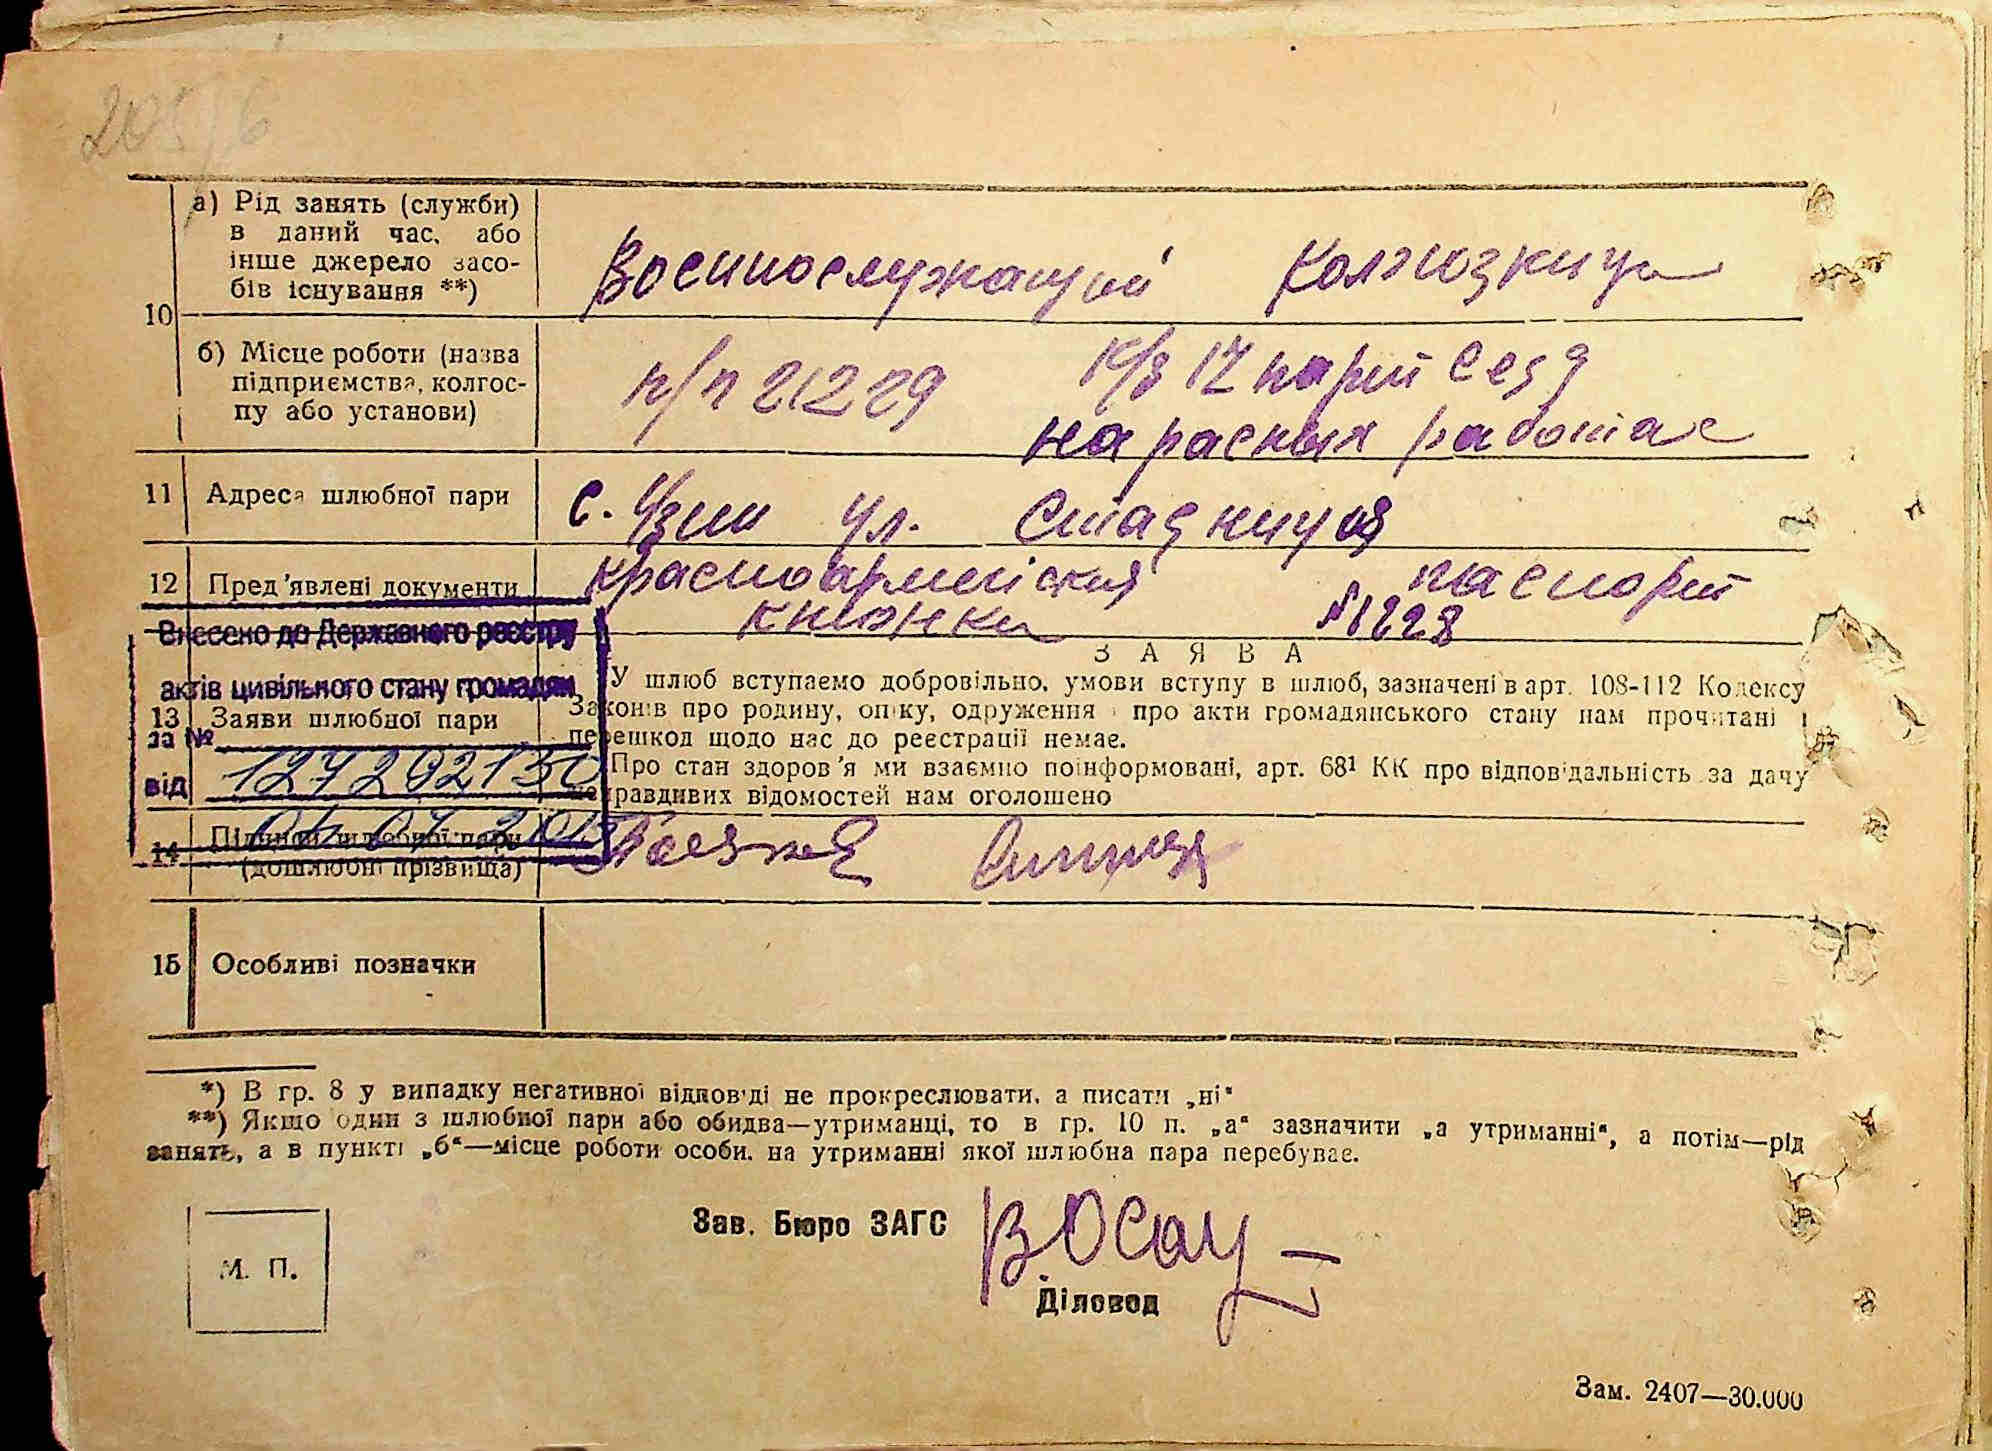 а) Рід занять (служби)
в даний час, або
інше джерело засо-
бів існування **)
Военнослужащий Колхозница
10
б) Місце роботи (назва
підприємства, колгос-
пу або установи)
п/п 21229 К/з 17 парт сезд
на расных работах
11 Адреса шлюбної пари
с. Узин ул.
12 Пред'явлені документи
Красноармейская паспорт
книжка №1228
Внесено до Державного реєстру
актів цивільного стану громадян
за №
127202130
від
З А Я В А
13 Заяви шлюбної пари
У шлюб вступаємо добровільно, умови вступу в шлюб, зазначені в арт. 108-112 Кодексу
Законів про родину, опіку, одруження і про акти громадянського стану нам прочитані і
перешкод щодо нас до реєстрації немає.
Про стан здоров'я ми взаємно поінформовані, арт. 68¹ КК про відповідальність за дачу
неправдивих відомостей нам оголошено
14 Підписи шлюбної пари
(дошлюбні прізвища)
15 Особливі позначки
*) В гр. 8 у випадку негативної відповіді не прокреслювати, а писати „ні“
**) Якщо один з шлюбної пари або обидва—утриманці, то в гр. 10 п. „а“ зазначити „а утриманні“, а потім—рід
занять, а в пункті „б“—місце роботи особи, на утриманні якої шлюбна пара перебуває.
М. П.
Зав. Бюро ЗАГС
Діловод
Зам. 2407—30.000